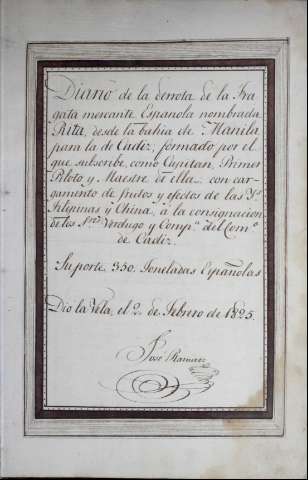 Diario de la derrota de la Fra
gata mercante Española nombrada
Rita, desde la bahia de Manila
para la de Cadiz, formado por el
que subscribe como Capitan, Primer
Piloto y Maestre de ella con car-
gamento de frutos y efectos de las Ys.
Filipinas y China, á la consignacion
de los Sres. Verdugo y Compa. del Como.
de Cadiz.
Su porte 350 Toneladas Españolas
Dio la Vela el 2 de Febrero de 1825.
José